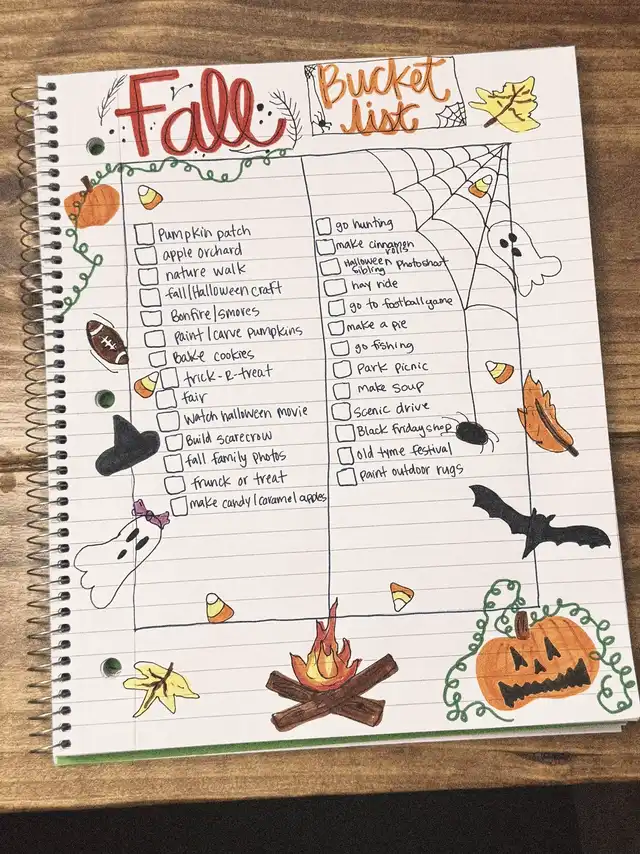 Fall
Bucket
list
Pumpkin patch
apple orchard
nature walk
fall/Halloween craft
Bonfire/smores
paint/carve pumpkins
Bake cookies
trick-R-treat
fair
Watch halloween movie
Build scarecrow
fall family photos
frunck or treat
make candy/caramel apples
go hunting
make cinnamon
rolls
Halloween Photoshoot
sibling
hay ride
go to football game
make a pie
go fishing
Park picnic
make soup
scenic drive
Black friday shop
old tyme festival
paint outdoor rugs